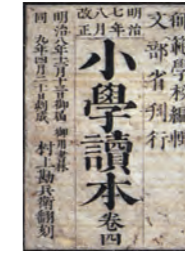 明治七年八月改正
師範學校編輯
文部省刊行
小學讀本 卷四
明治八年十二月十三日御届 御用書林
同 九年四月二十日刻成 村上勘兵衛翻刻